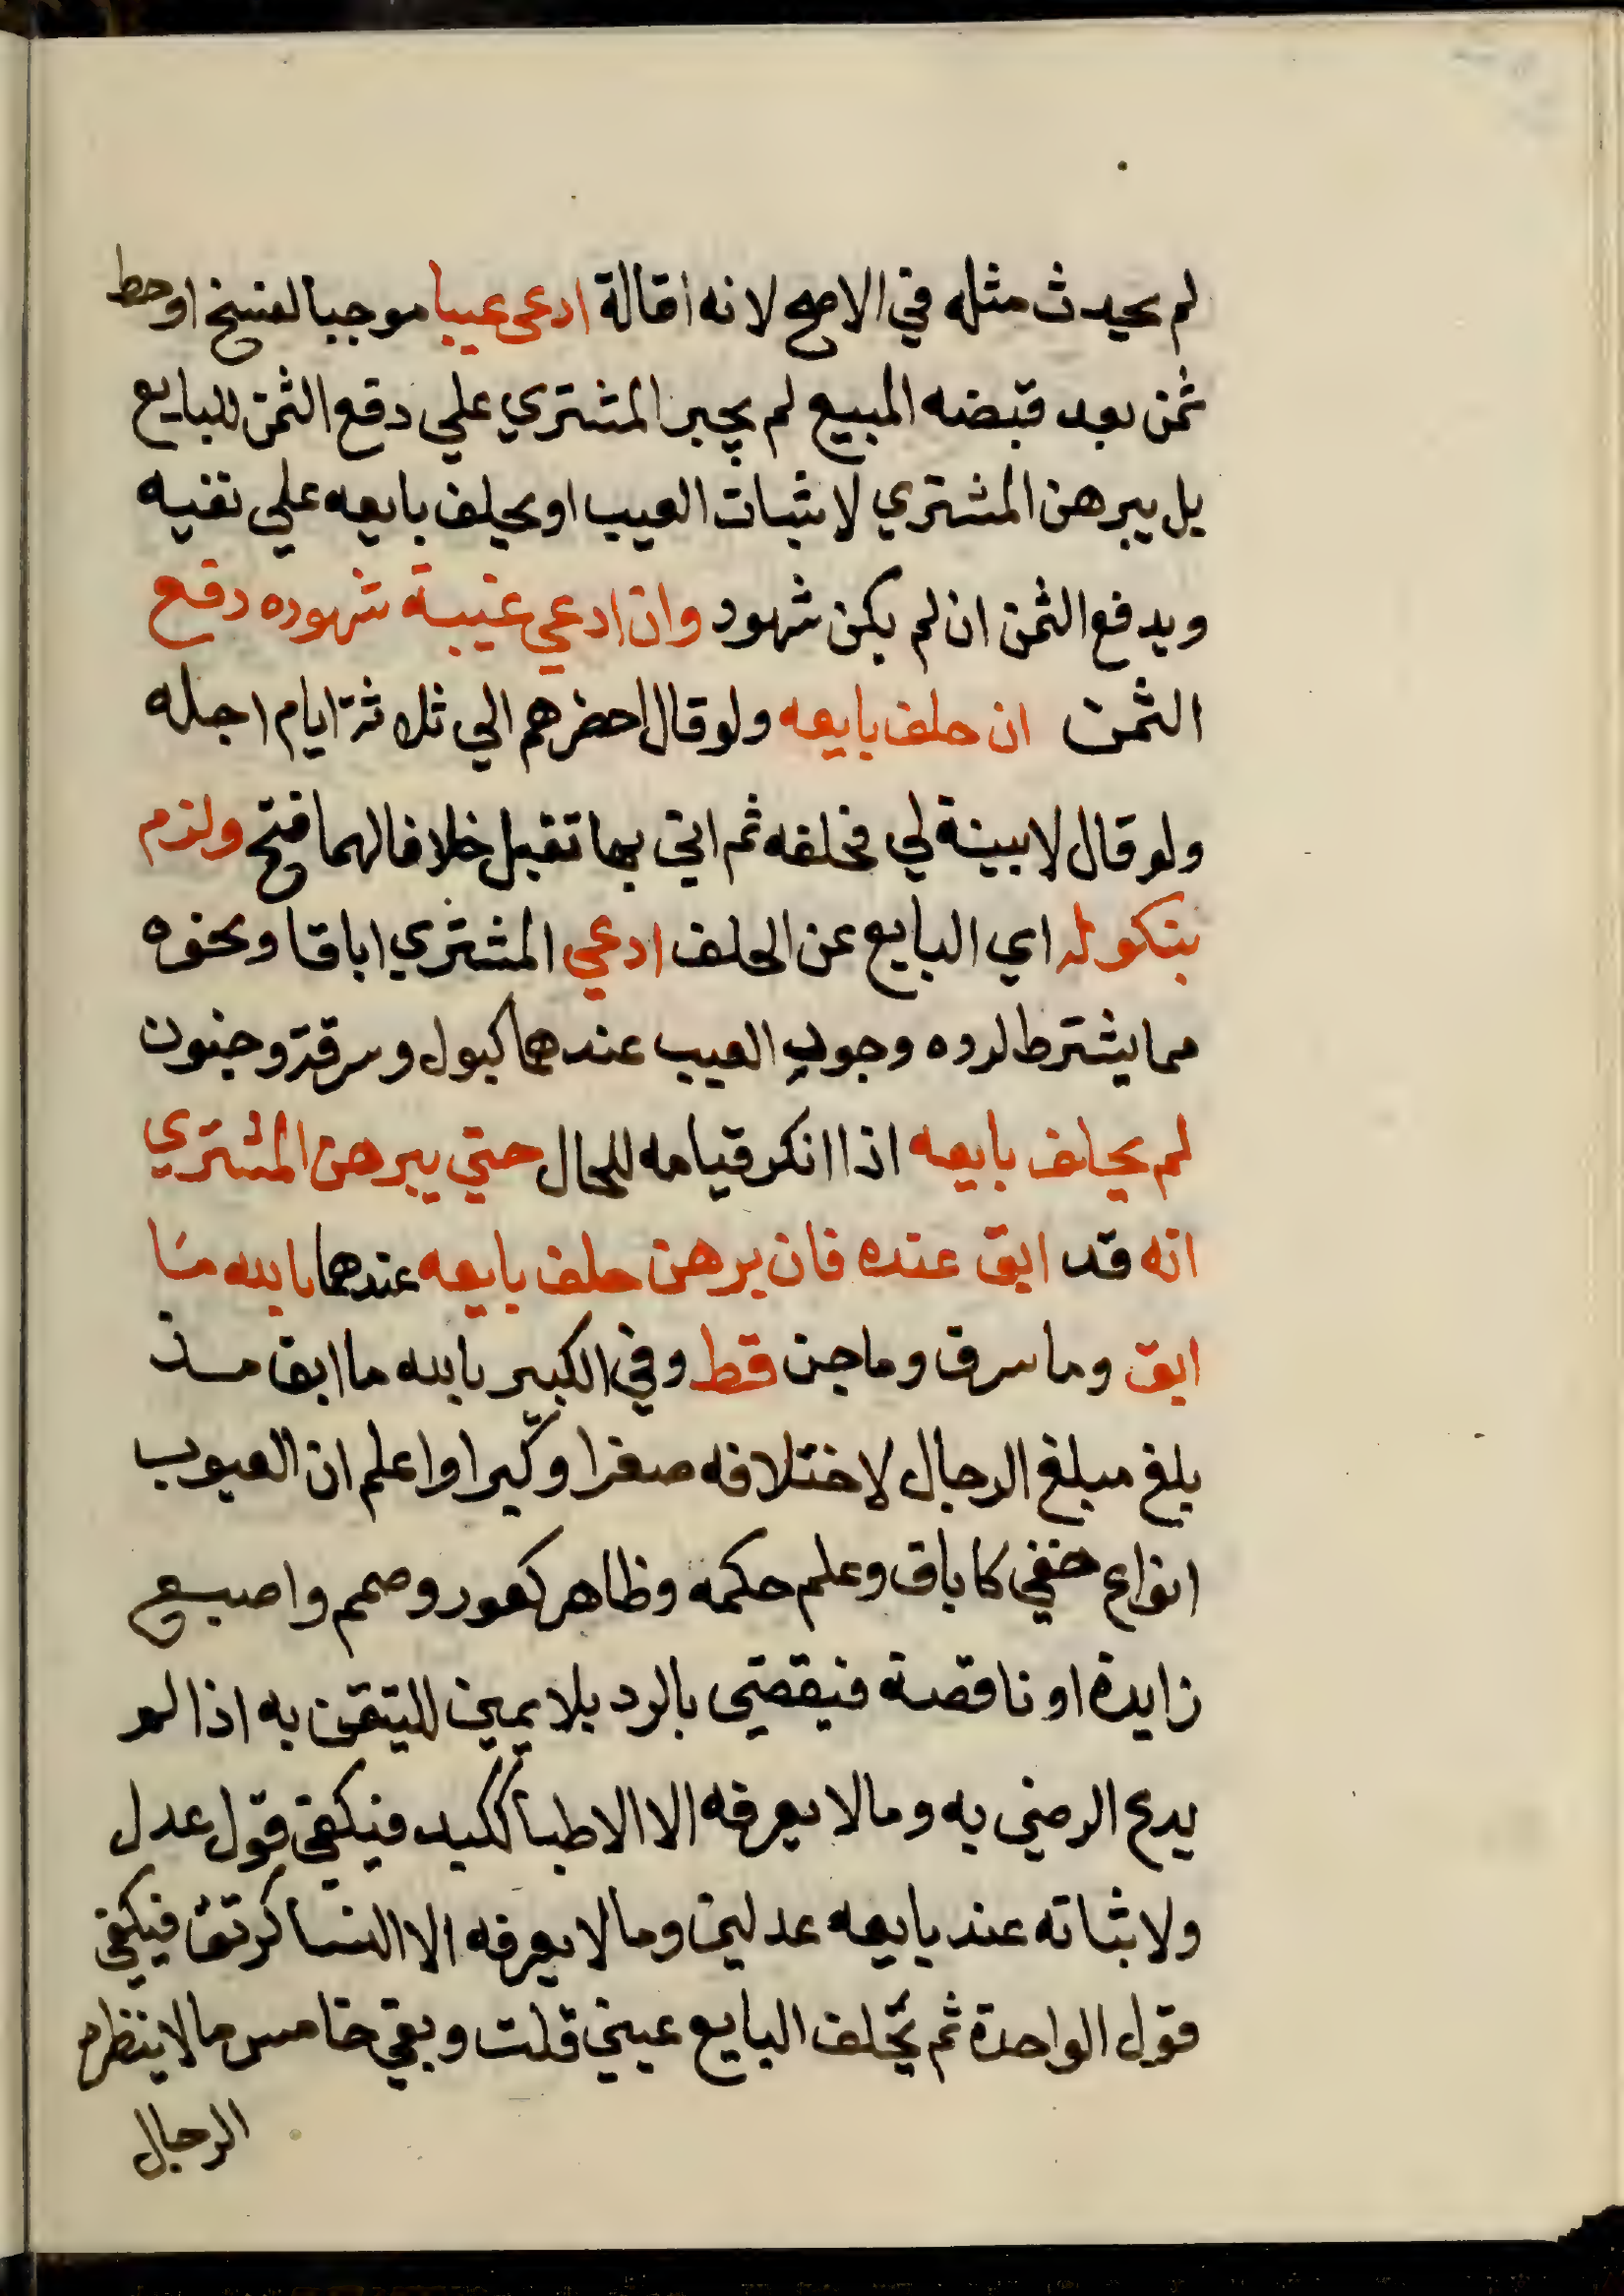 لم يحدث مثله في الاصح لانه اقالة ادعى عيبا موجبا لفسخ او حط
ثمن بعد قبضه المبيع لم يجبر المشتري علي دفع الثمن للبايع
بل يبرهن المشتري لاثبات العيب او يحلف بايعه علي نفيه
ويدفع الثمن ان لم يكن شهود وان ادعي غيبة شهوده دفع
الثمن ان حلف بايعه ولو قال احضرهم الي ثلاثة ايام اجله
ولو قال لا بينة لي فحلفه ثم اتي بها تقبل خلافا لهما فتح ولزم
بنكوله اي البايع عن الحلف ادعي المشتري اباقا ونحوه
مما يشترط لرده وجود العيب عندهما كبول وسرقة وجنون
لم يحلف بايعه اذا انكر قيامه للحال حتي يبرهن المشتري
انه قد ابق عنده فان برهن حلف بايعه عندهما بالله ما
ابق وما سرق وما جن قط وفي الكبير بالله ما ابق مذ
بلغ مبلغ الرجال لاختلافه صغرا وكبرا واعلم ان العيوب
انواع خفي كاباق وعلم حكمه وظاهر كعور وصمم واصبع
زايدة او ناقصة فيقضي بالرد بلا يمين للتيقن به اذا لم
يدع الرضي به وما لا يعرفه الا الاطبا ككبد فيكفي قول عدل
ولاثباته عند بايعه عدلين وما لا يعرفه الا النسا كرتق فيكفي
قول الواحدة ثم يحلف البايع عيني قلت وبقي خامس ما لا ينظره
الرجال